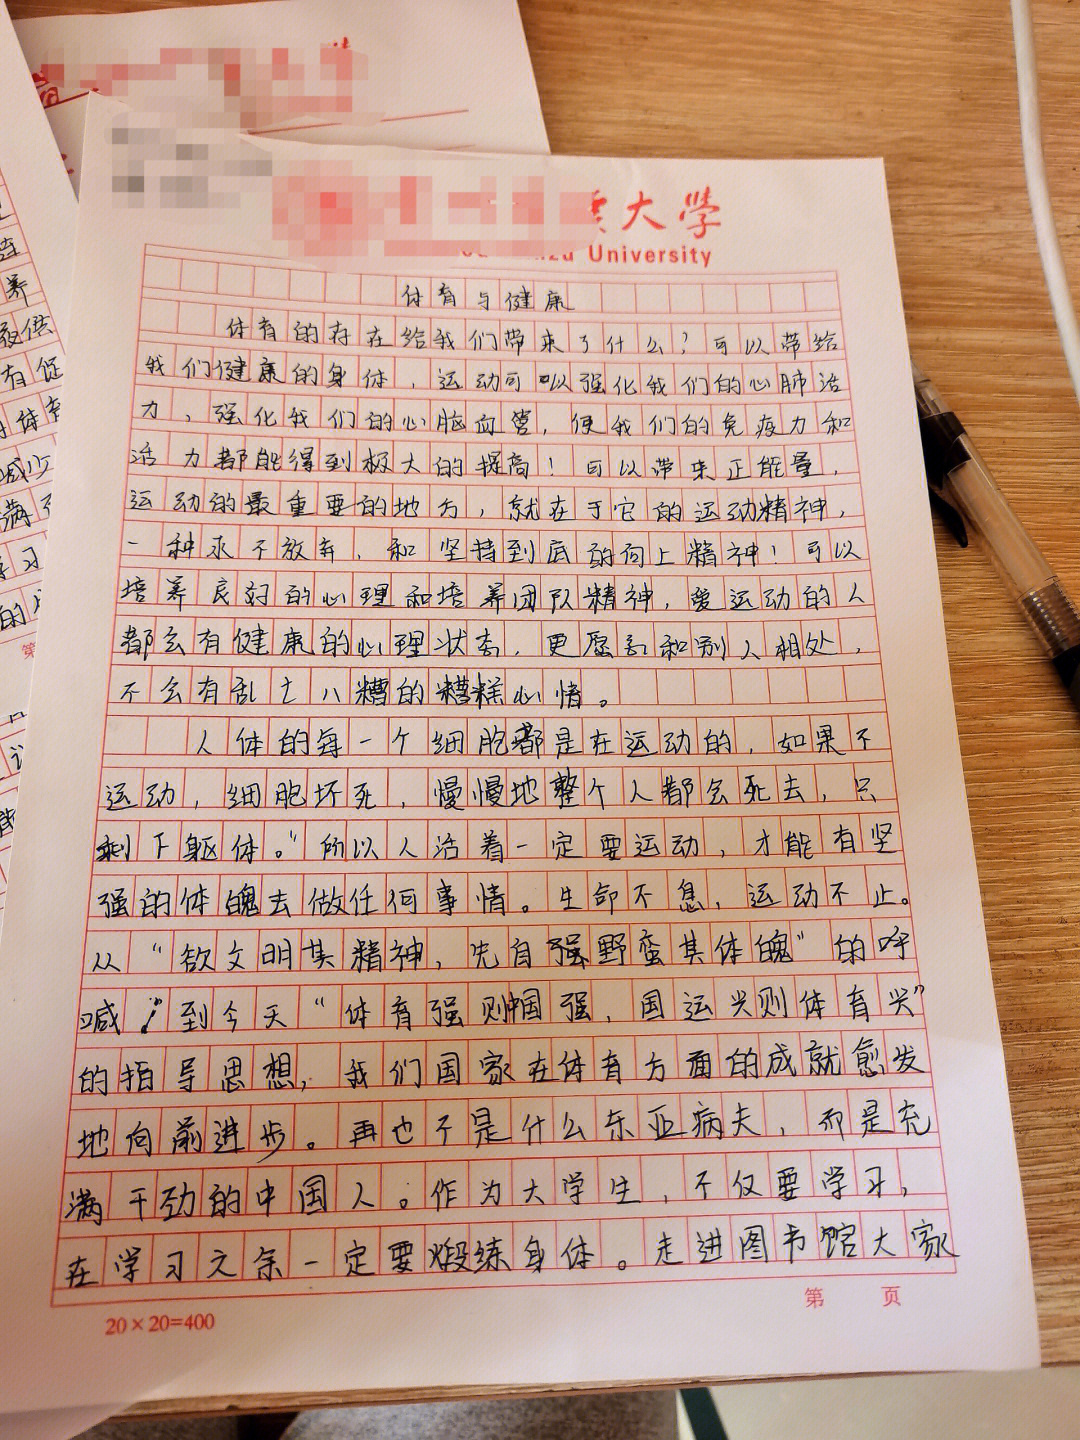 大学
University
体育与健康
体育的存在给我们带来了什么？可以带给
我们健康的身体，运动可以强化我们的心肺活
力，强化我们的心脑血管，使我们的免疫力和
活力都能得到极大的提高！可以带来正能量，
运动的最重要的地方，就在于它的运动精神，
一种永不放弃，和坚持到底的向上精神！可以
培养良好的心理和培养团队精神，爱运动的人
都会有健康的心理状态，更愿意和别人相处，
不会有乱七八糟的糟糕心情。
人体的每一个细胞都是在运动的，如果不
运动，细胞坏死，慢慢地整个人都会死去，只
剩下躯体。"所以人活着一定要运动，才能有坚
强的体魄去做任何事情。生命不息，运动不止。
从"欲文明其精神，先自强野蛮其体魄"的呼
喊，到今天"体育强则中国强，国运兴则体育兴"
的指导思想，我们国家在体育方面的成就愈发
地向前进步。再也不是什么东亚病夫，而是充
满干劲的中国人。作为大学生，不仅要学习，
在学习之余一定要煅练身体。走进图书馆大家
第 页
20×20=400